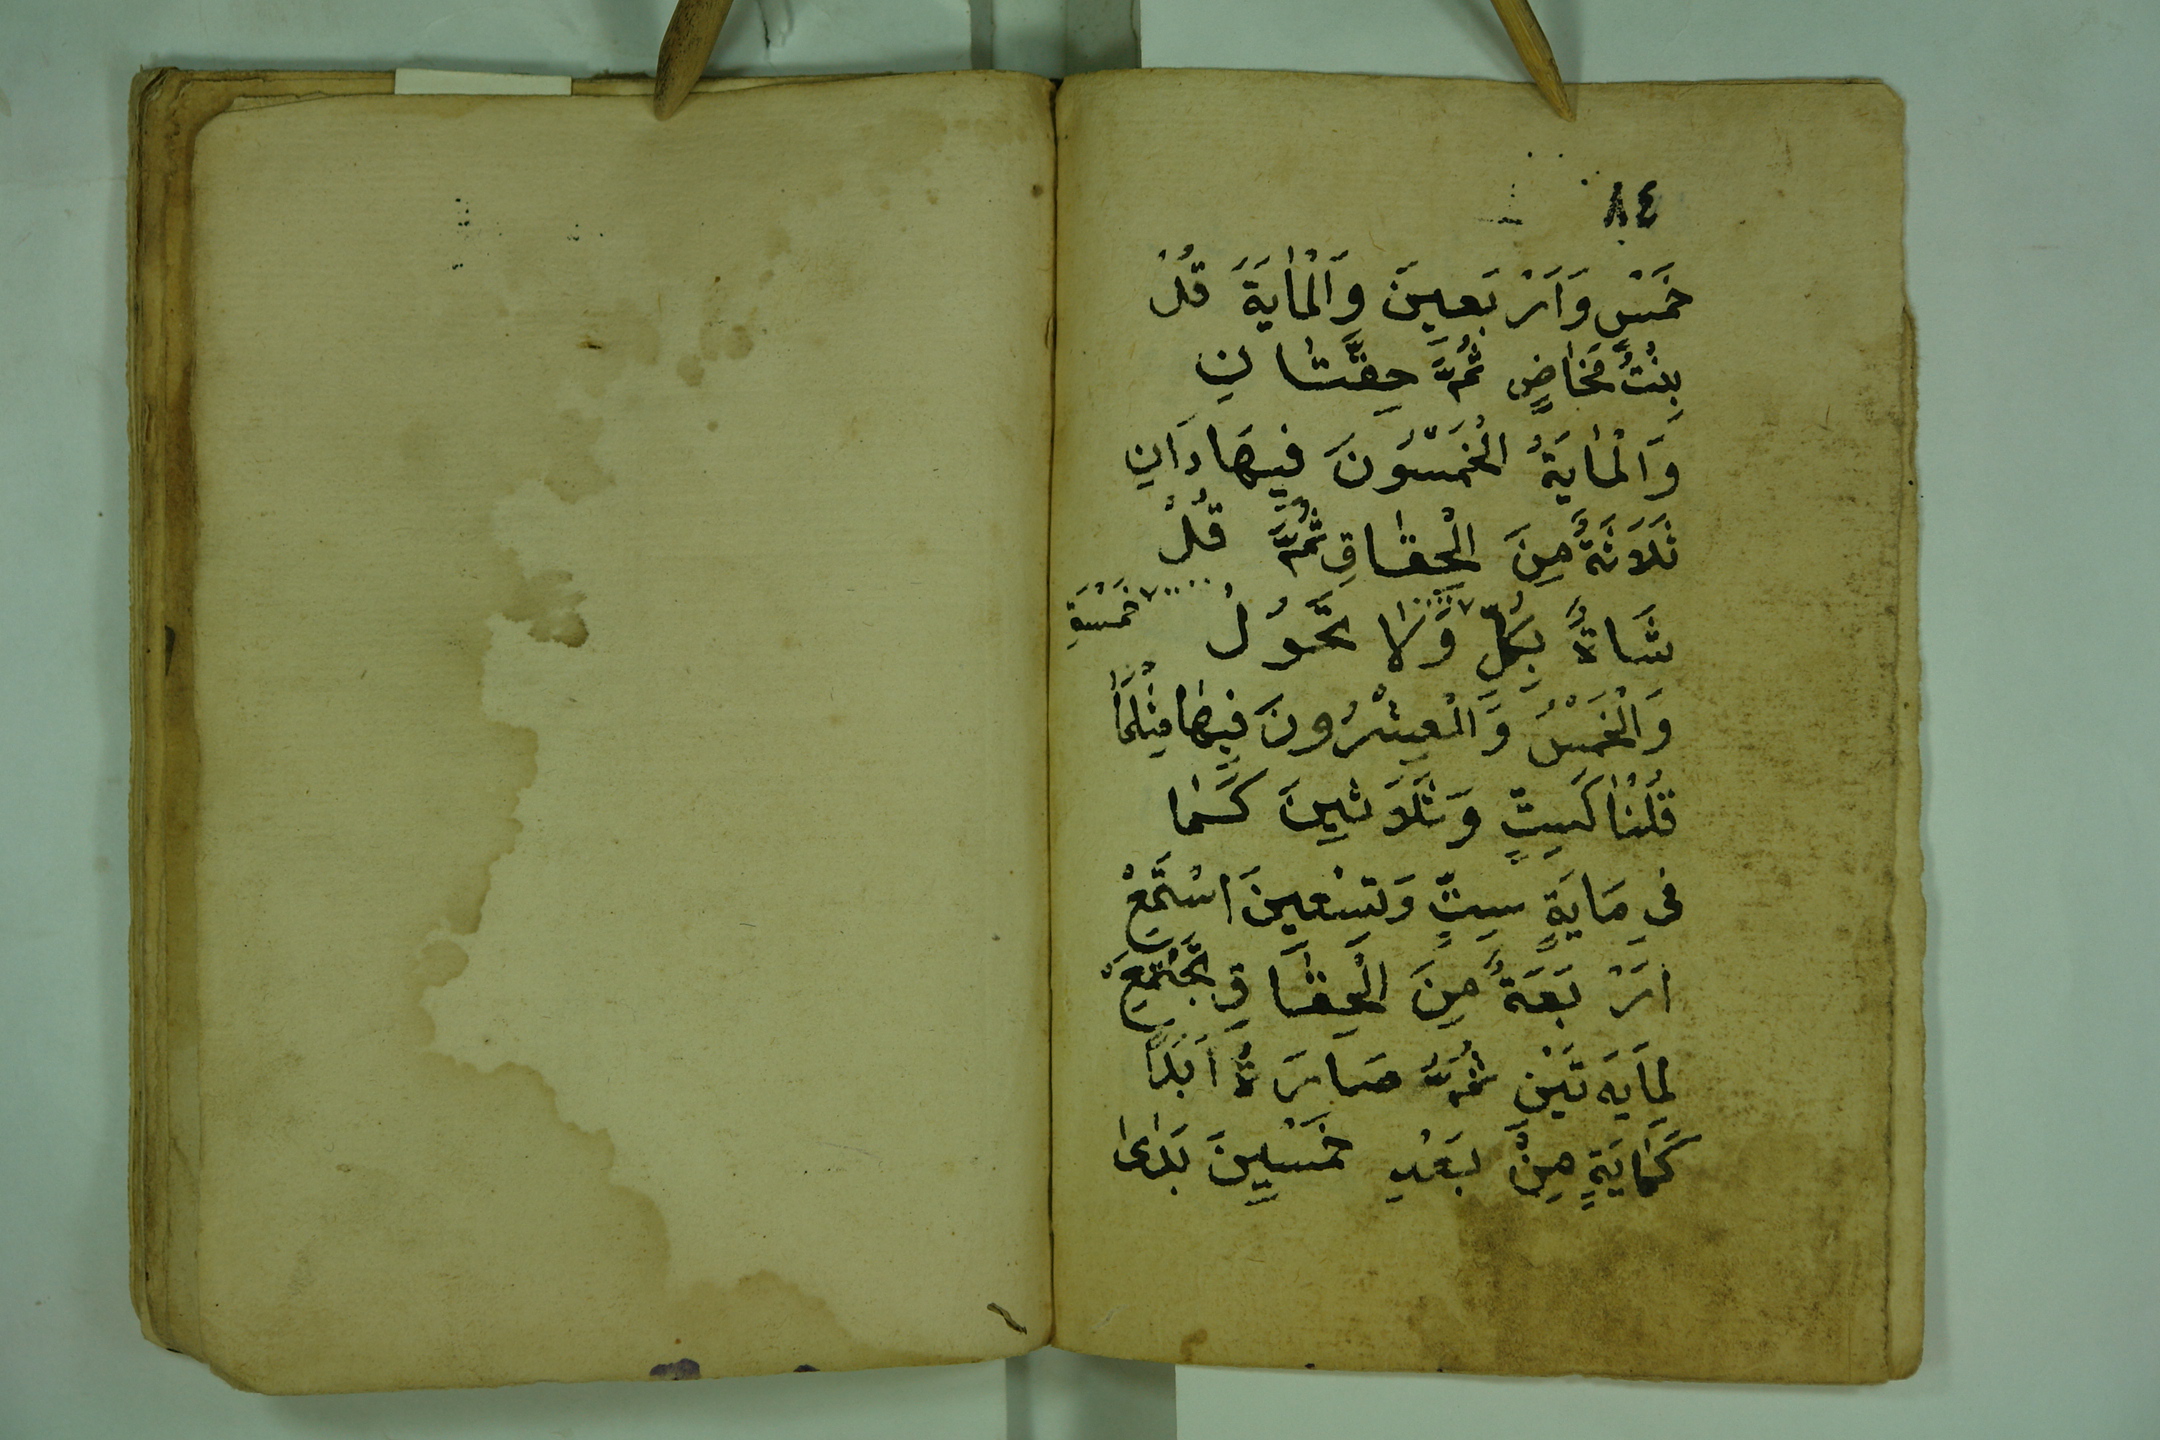 ٨٤
خَمْسٍ وَاَرْبَعِينَ وَالْمٰايَةَ قُلْ
بِنْتُ مَخٰاضٍ ثُمَّ حِقَّتٰانِ
وَالْمٰايَةُ الْخَمْسُونَ فِيهَا دَانِ
ثَلَاثَةٌ مِنَ الْحِقٰاقِ ثُمَّ قُلْ
شَاةٌ بِكُلِّ وَلٰا تَحُولُ
خَمْسَةِ
وَالْخَمْسُ وَالْعِشْرُونَ فِيهٰا مِثْلَمٰا
قُلْنٰا كَسِتٍّ وَثَلَاثِينَ كَمٰا
فِى مَايَةٍ سِتٍّ وَتِسْعِينَ اسْتَمِعْ
اَرْبَعَةٌ مِنَ الْحِقَاقِ تَجْتَمِعْ
لِمَايَةَ تَيْنِ ثُمَّ صَارَةٌ اَبَدًا
كَمٰايَةٍ مِنْ بَعْدِ خَمْسِينَ بَدٰى